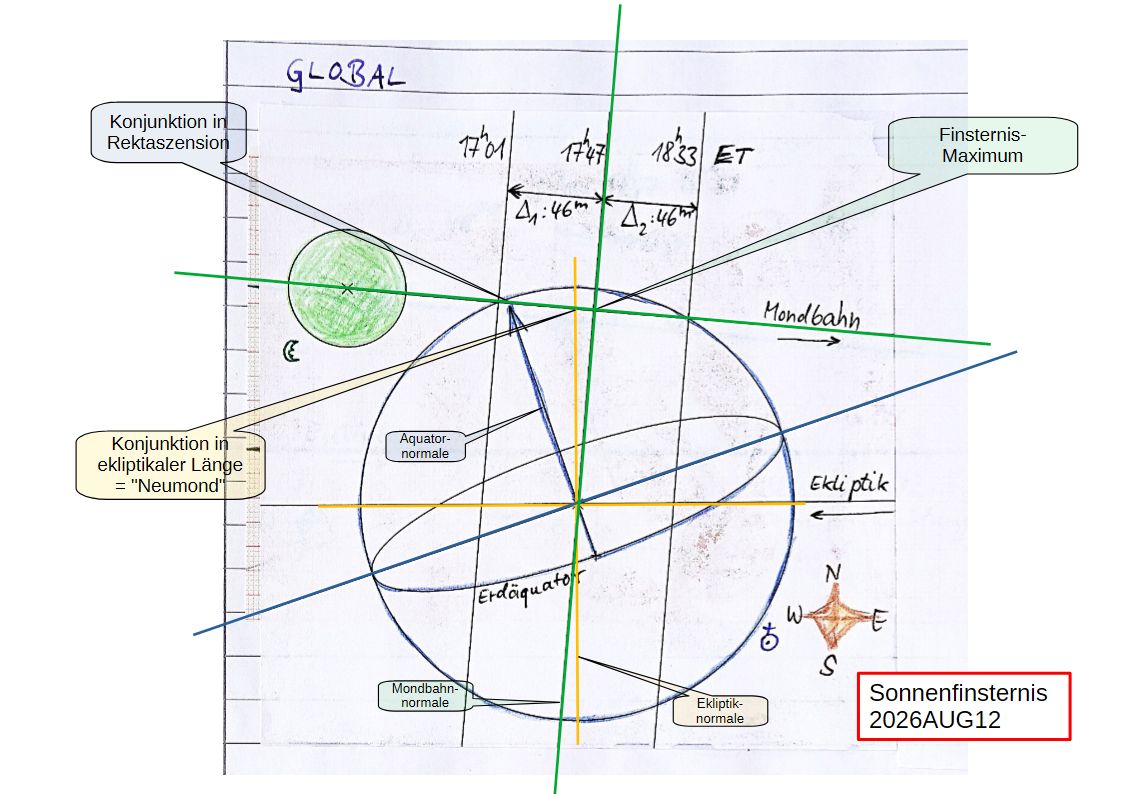 GLOBAL
Konjunktion in
Rektaszension
17h01
17h47
18h33 ET
Finsternis-
Maximum
Δ1:46m
Δ2:46m
Mondbahn
Konjunktion in
ekliptikaler Länge
= "Neumond"
Äquator-
normale
Ekliptik
Erdäquator
N
W E
S
Mondbahn-
normale
Ekliptik-
normale
Sonnenfinsternis
2026AUG12